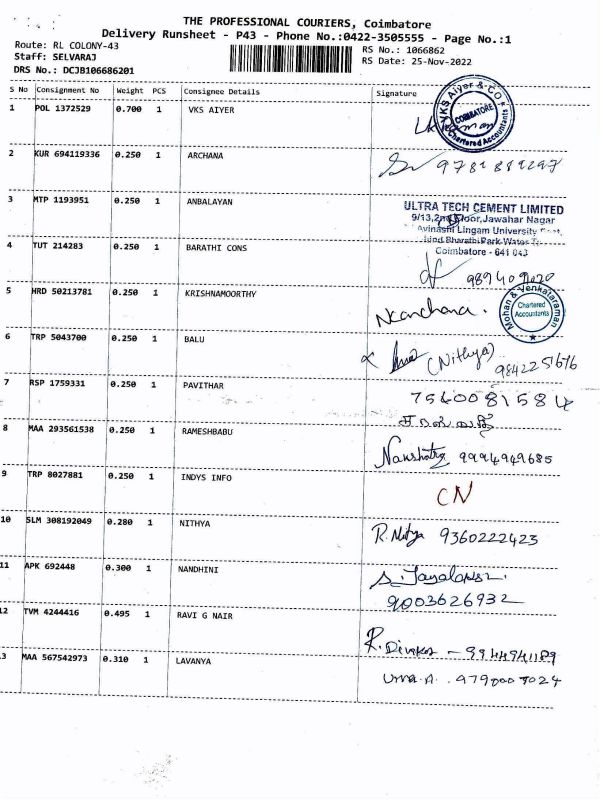 THE PROFESSIONAL COURIERS, Coimbatore
Delivery Runsheet - P43 - Phone No.:0422-3505555 - Page No.:1
Route: RL COLONY-43
Staff: SELVARAJ
DRS No.: DCJB106686201
RS No.: 1066862
RS Date: 25-Nov-2022
S No Consignment No Weight PCS Consignee Details Signature
1 POL 1372529 0.700 1 VKS AIYER
VKS Aiyer & CO
COIMBATORE
Chartered Accountants
2 KUR 694119336 0.250 1 ARCHANA
3 MTP 1193951 0.250 1 ANBALAYAN
ULTRA TECH CEMENT LIMITED
9/13,2nd Floor,Jawahar Nagar
Avinashi Lingam University
4 TUT 214283 0.250 1 BARATHI CONS
Bharathi Park Water
Coimbatore - 641 043
5 HRD 50213781 0.250 1 KRISHNAMOORTHY
Ncanchana.
Mohan & Venkataraman
Chartered
Accountants
6 TRP 5043700 0.250 1 BALU
(Nithya)
7 RSP 1759331 0.250 1 PAVITHAR
7560081584
8 MAA 293561538 0.250 1 RAMESHBABU
9994949685
9 TRP 8027881 0.250 1 INDYS INFO
CN
10 SLM 308192049 0.280 1 NITHYA
R. Nitya 9360222423
11 APK 692448 0.300 1 NANDHINI
9003626932
2 TVM 4244416 0.495 1 RAVI G NAIR
3 MAA 567542973 0.310 1 LAVANYA
Uma.A.